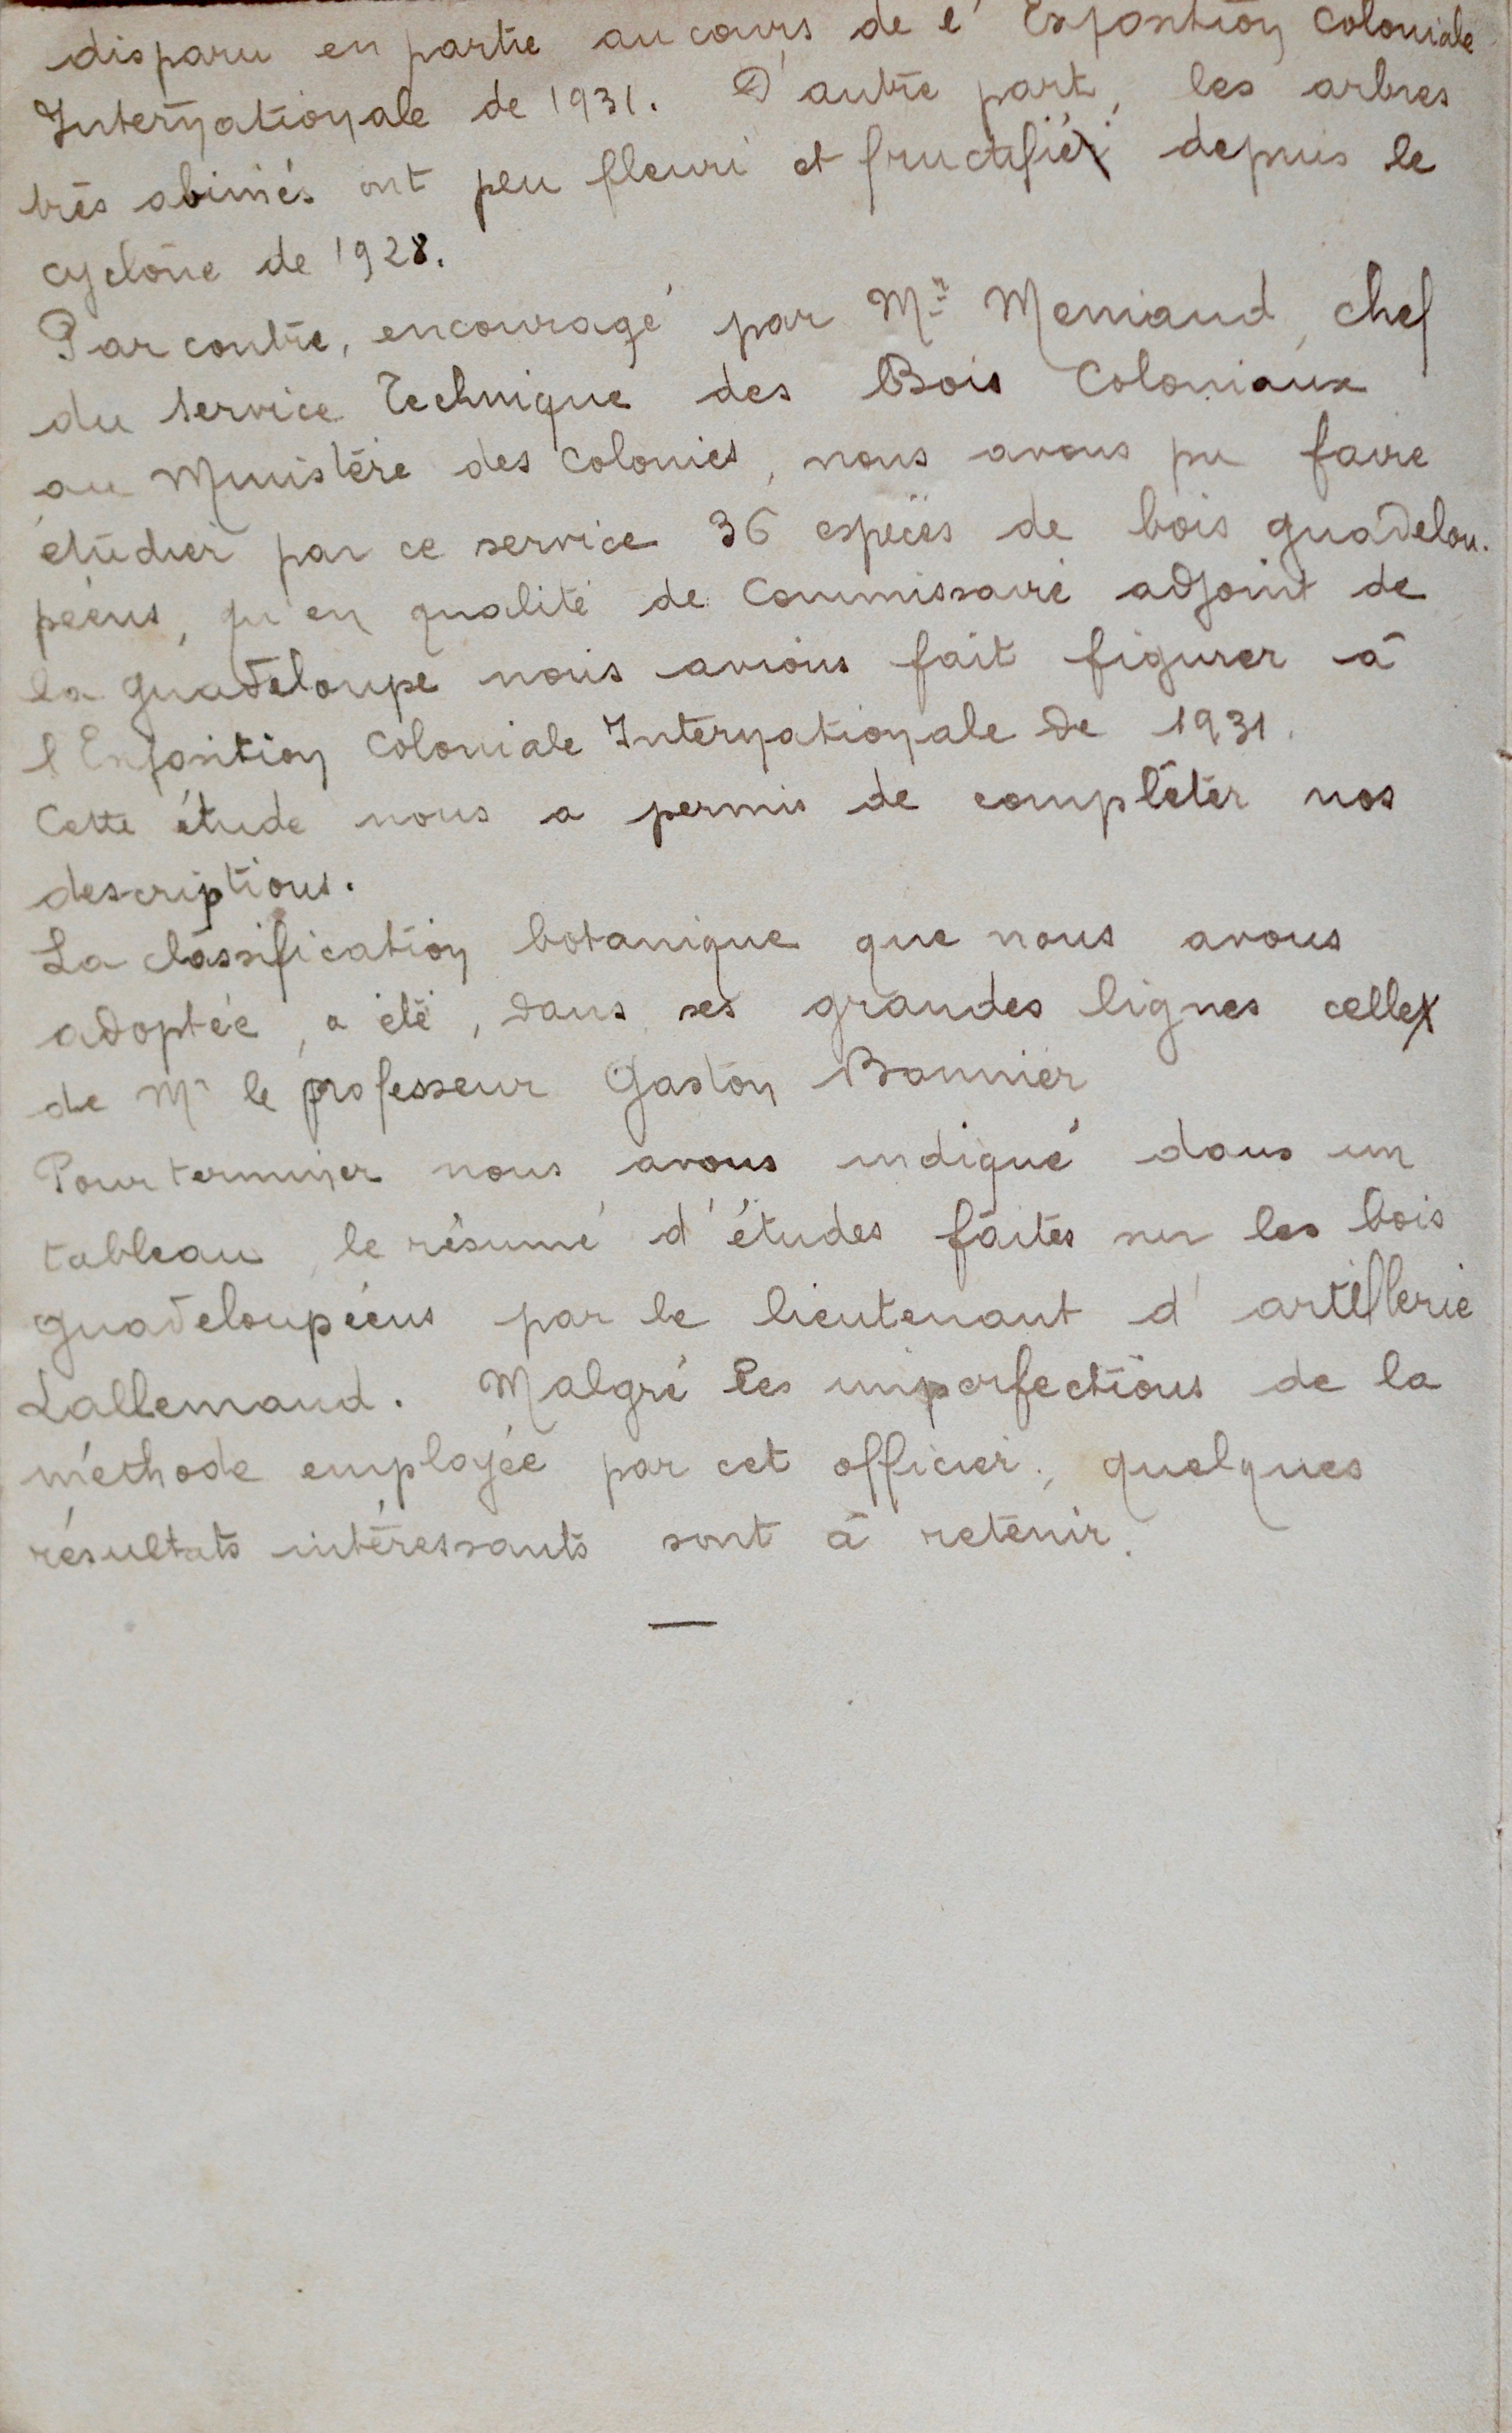 disparu en partie au cours de l'Exposition Coloniale
Internationale de 1931. D'autre part, les arbres
très abimés ont peu fleuri et fructifié depuis le
cyclone de 1928.
Par contre, encouragé par Mr Meniaud, chef
du Service Technique des Bois Coloniaux
au Ministère des Colonies, nous avons pu faire
étudier par ce service 36 espèces de bois guadelou-
péens, qu'en qualité de Commissaire adjoint de
la Guadeloupe nous avions fait figurer à
l'Exposition Coloniale Internationale de 1931.
Cette étude nous a permis de compléter nos
descriptions.
La classification botanique que nous avons
adoptée, a été, dans ses grandes lignes celle
de Mr le professeur Gaston Bonnier
Pour terminer nous avons indiqué dans un
tableau, le résumé d'études faites sur les bois
guadeloupéens par le lieutenant d'artillerie
Lallemand. Malgré les imperfections de la
méthode employée par cet officier, quelques
résultats intéressants sont à retenir.